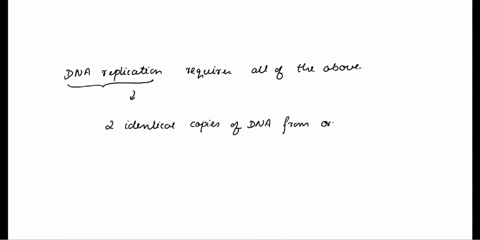 DNA replication requires all of the above.
2 identical copies of DNA from or